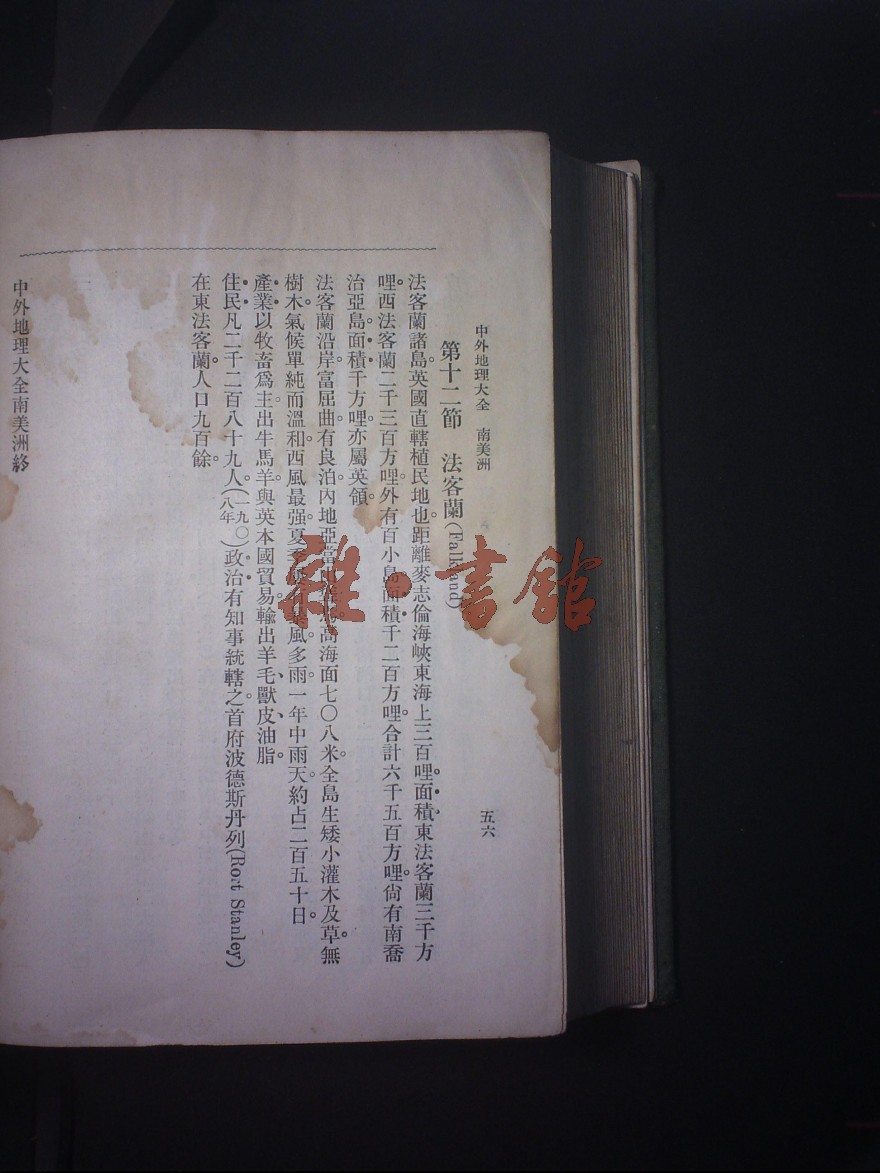 中外地理大全　南美洲
五六
第十二節　法客蘭(Falkland)
法客蘭諸島英國直轄植民地也。距離麥志倫海峽東海上三百哩。面積東法客蘭三千方
哩。西法客蘭二千三百方哩。外有百小島。面積千二百方哩。合計六千五百方哩。尙有南喬
治亞島。面積千方哩。亦屬英領。
法客蘭沿岸富屈曲。有良泊。內地亞當 高海面七〇八米。全島生矮小灌木及草。無
樹木。氣候單純而溫和。西風最强。夏季 風。多雨。一年中雨天。約占二百五十日。
產業以牧畜爲主。出牛馬羊。與英本國貿易。輸出羊毛、獸皮、油脂。
住民凡二千二百八十九人。(一九〇八年)政治有知事統轄之。首府波德斯丹列(Rort Stanley)
在東法客蘭。人口九百餘。
中外地理大全南美洲終
雜·書館